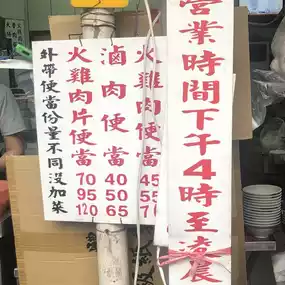 營業時間下午4時至凌晨
火雞肉便當
45
55
滷肉便當
40
50
65
火雞肉片便當
70
95
120
外帶便當份量不同沒加菜